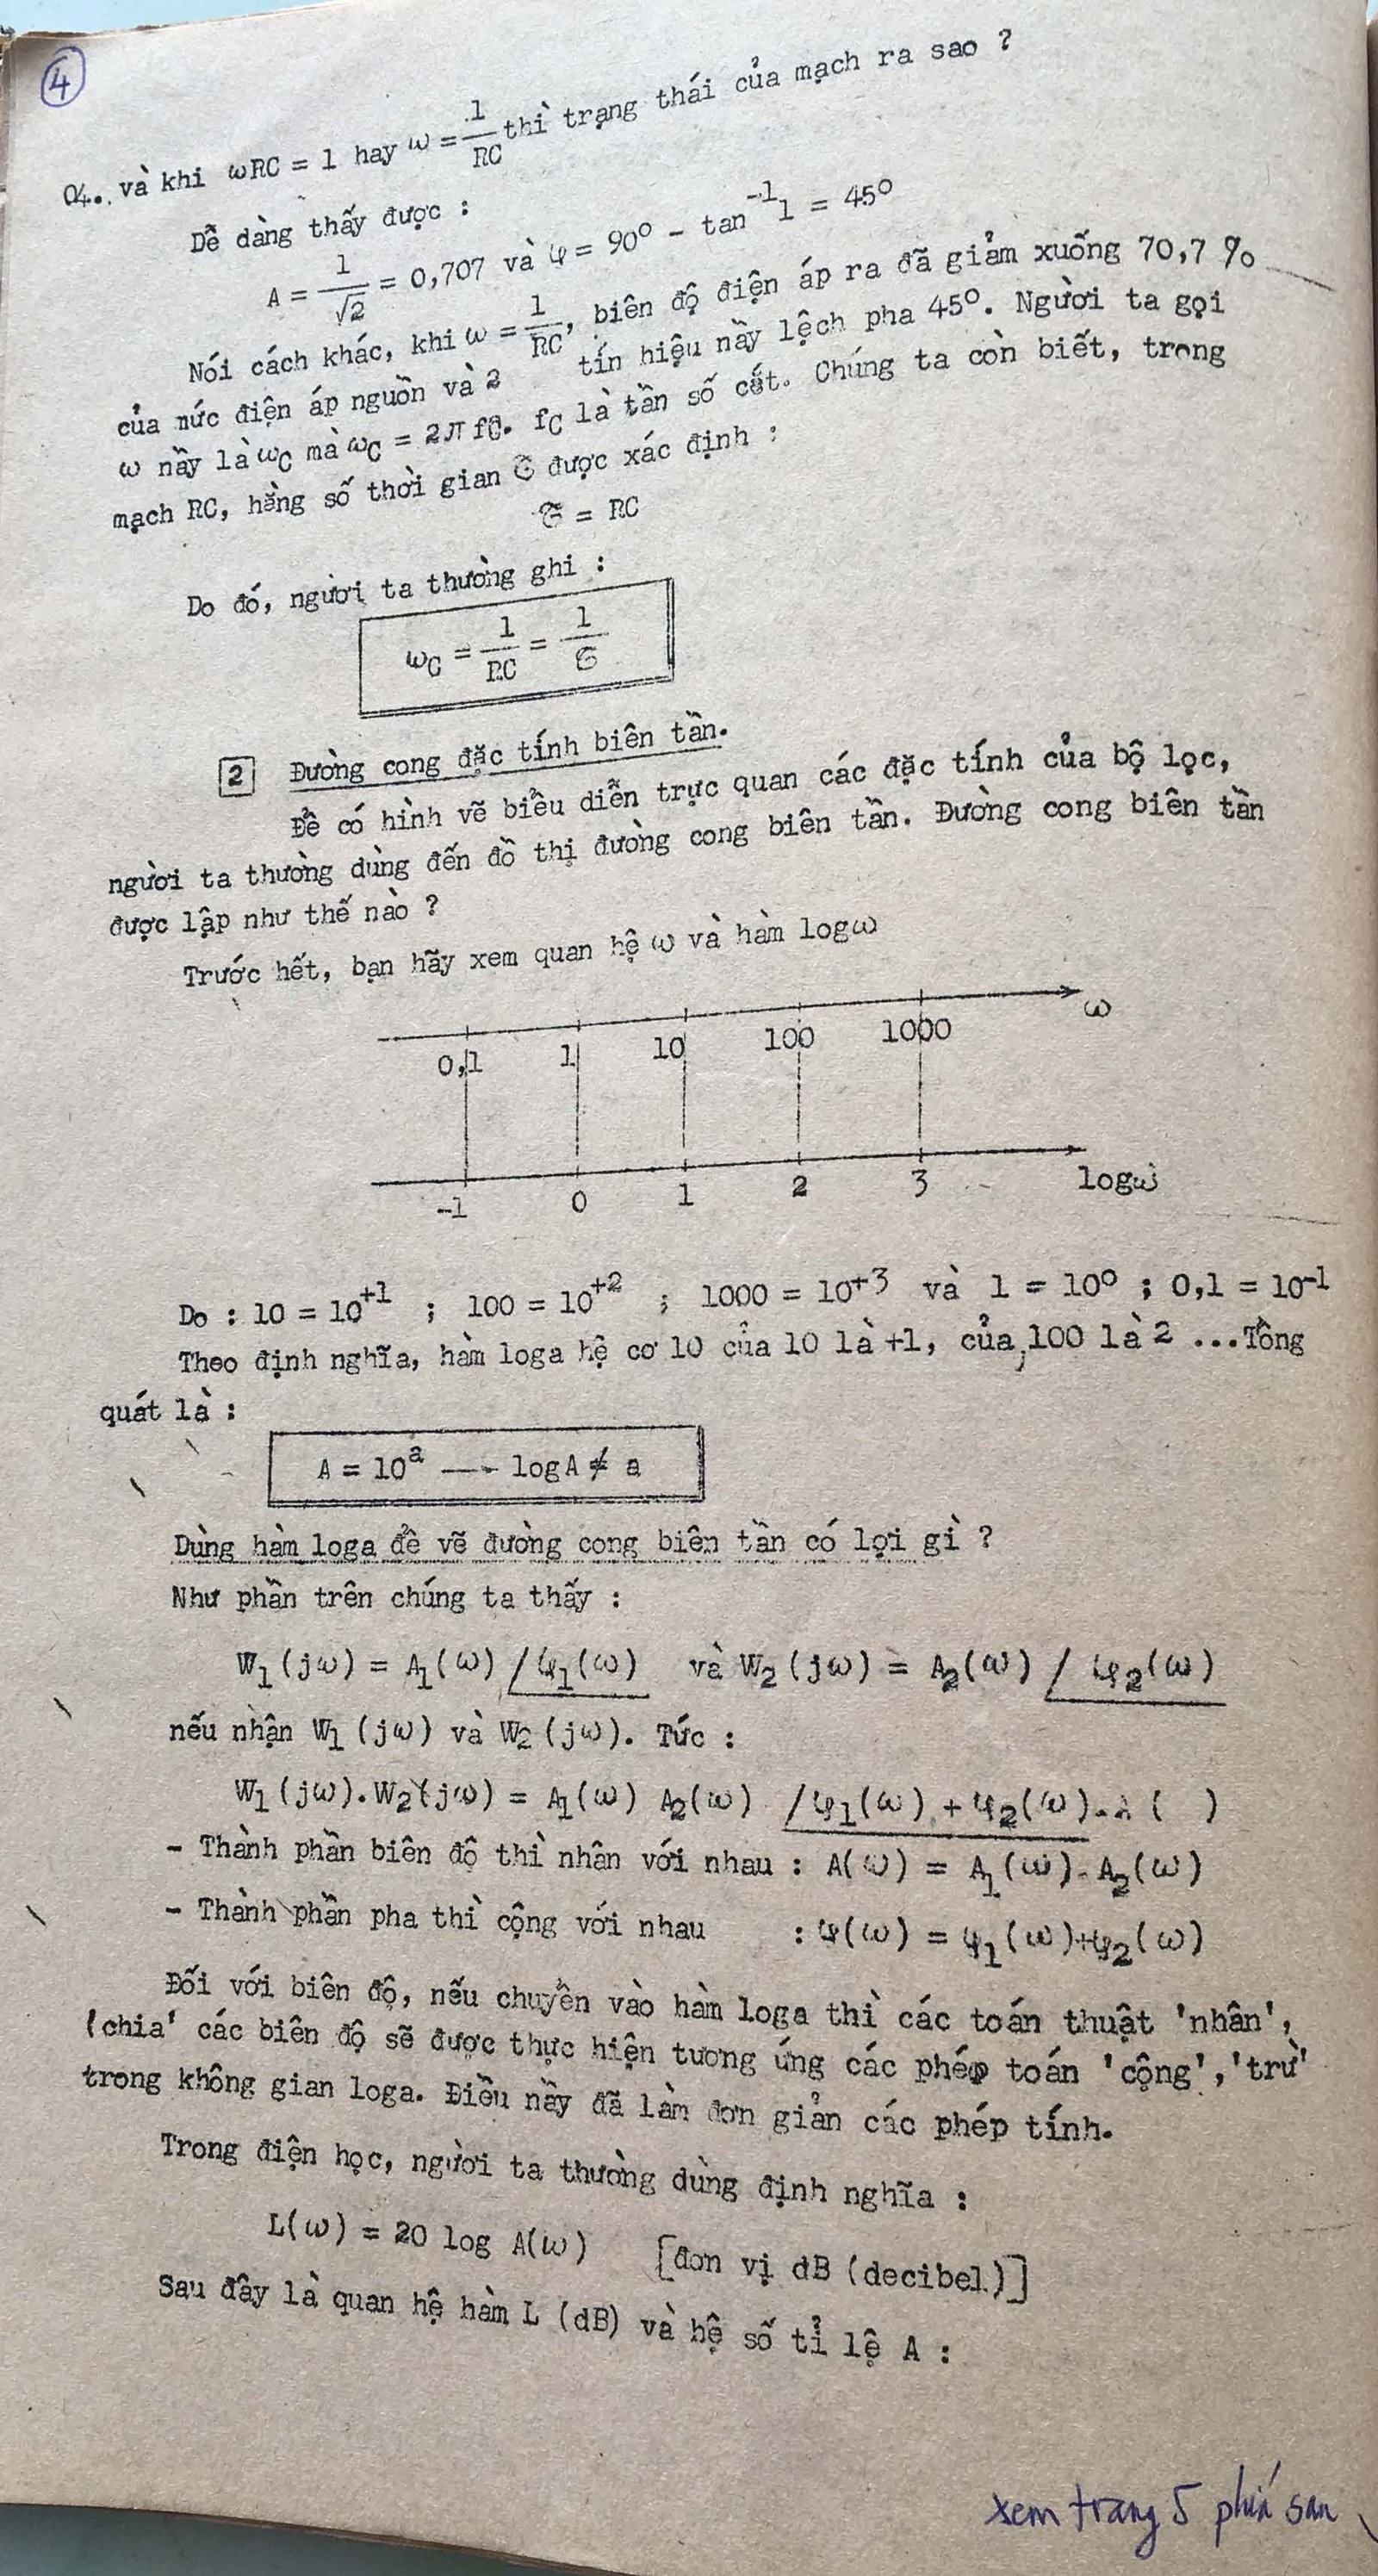 4
04.. và khi ωRC = 1 hay ω = 1/RC thì trạng thái của mạch ra sao ?
Dễ dàng thấy được :
A = 1/√2 = 0,707 và φ = 90° - tan⁻¹1 = 45°
Nói cách khác, khi ω = 1/RC, biên độ điện áp ra đã giảm xuống 70,7 %
của mức điện áp nguồn và 2 tín hiệu nầy lệch pha 45°. Người ta gọi
ω nầy là ωC mà ωC = 2π fC. fC là tần số cắt. Chúng ta còn biết, trong
mạch RC, hằng số thời gian τ được xác định :
τ = RC
Do đó, người ta thường ghi :
ωC = 1/RC = 1/τ
2 Đường cong đặc tính biên tần.
Để có hình vẽ biểu diễn trực quan các đặc tính của bộ lọc,
người ta thường dùng đến đồ thị đường cong biên tần. Đường cong biên tần
được lập như thế nào ?
Trước hết, bạn hãy xem quan hệ ω và hàm logω
ω
0,1 1 10 100 1000
-1 0 1 2 3 logω
Do : 10 = 10⁺¹ ; 100 = 10⁺² ; 1000 = 10⁺³ và 1 = 10⁰ ; 0,1 = 10⁻¹
Theo định nghĩa, hàm loga hệ cơ 10 của 10 là +1, của 100 là 2 ...Tổng
quát là :
A = 10ᵃ —- logA ≠ a
Dùng hàm loga để vẽ đường cong biên tần có lợi gì ?
Như phần trên chúng ta thấy :
W₁(jω) = A₁(ω) /φ₁(ω) và W₂(jω) = A₂(ω) / φ₂(ω)
nếu nhận W₁ (jω) và W₂ (jω). Tức :
W₁(jω).W₂(jω) = A₁(ω) A₂(ω) /φ₁(ω) + φ₂(ω) ( )
- Thành phần biên độ thì nhân với nhau : A(ω) = A₁(ω). A₂(ω)
- Thành phần pha thì cộng với nhau : φ(ω) = φ₁(ω)+φ₂(ω)
Đối với biên độ, nếu chuyển vào hàm loga thì các toán thuật 'nhân',
'chia' các biên độ sẽ được thực hiện tương ứng các phép toán 'cộng','trừ'
trong không gian loga. Điều nầy đã làm đơn giản các phép tính.
Trong điện học, người ta thường dùng định nghĩa :
L(ω) = 20 log A(ω) [đơn vị dB (decibel)]
Sau đây là quan hệ hàm L (dB) và hệ số tỉ lệ A :
xem trang 5 phía sau